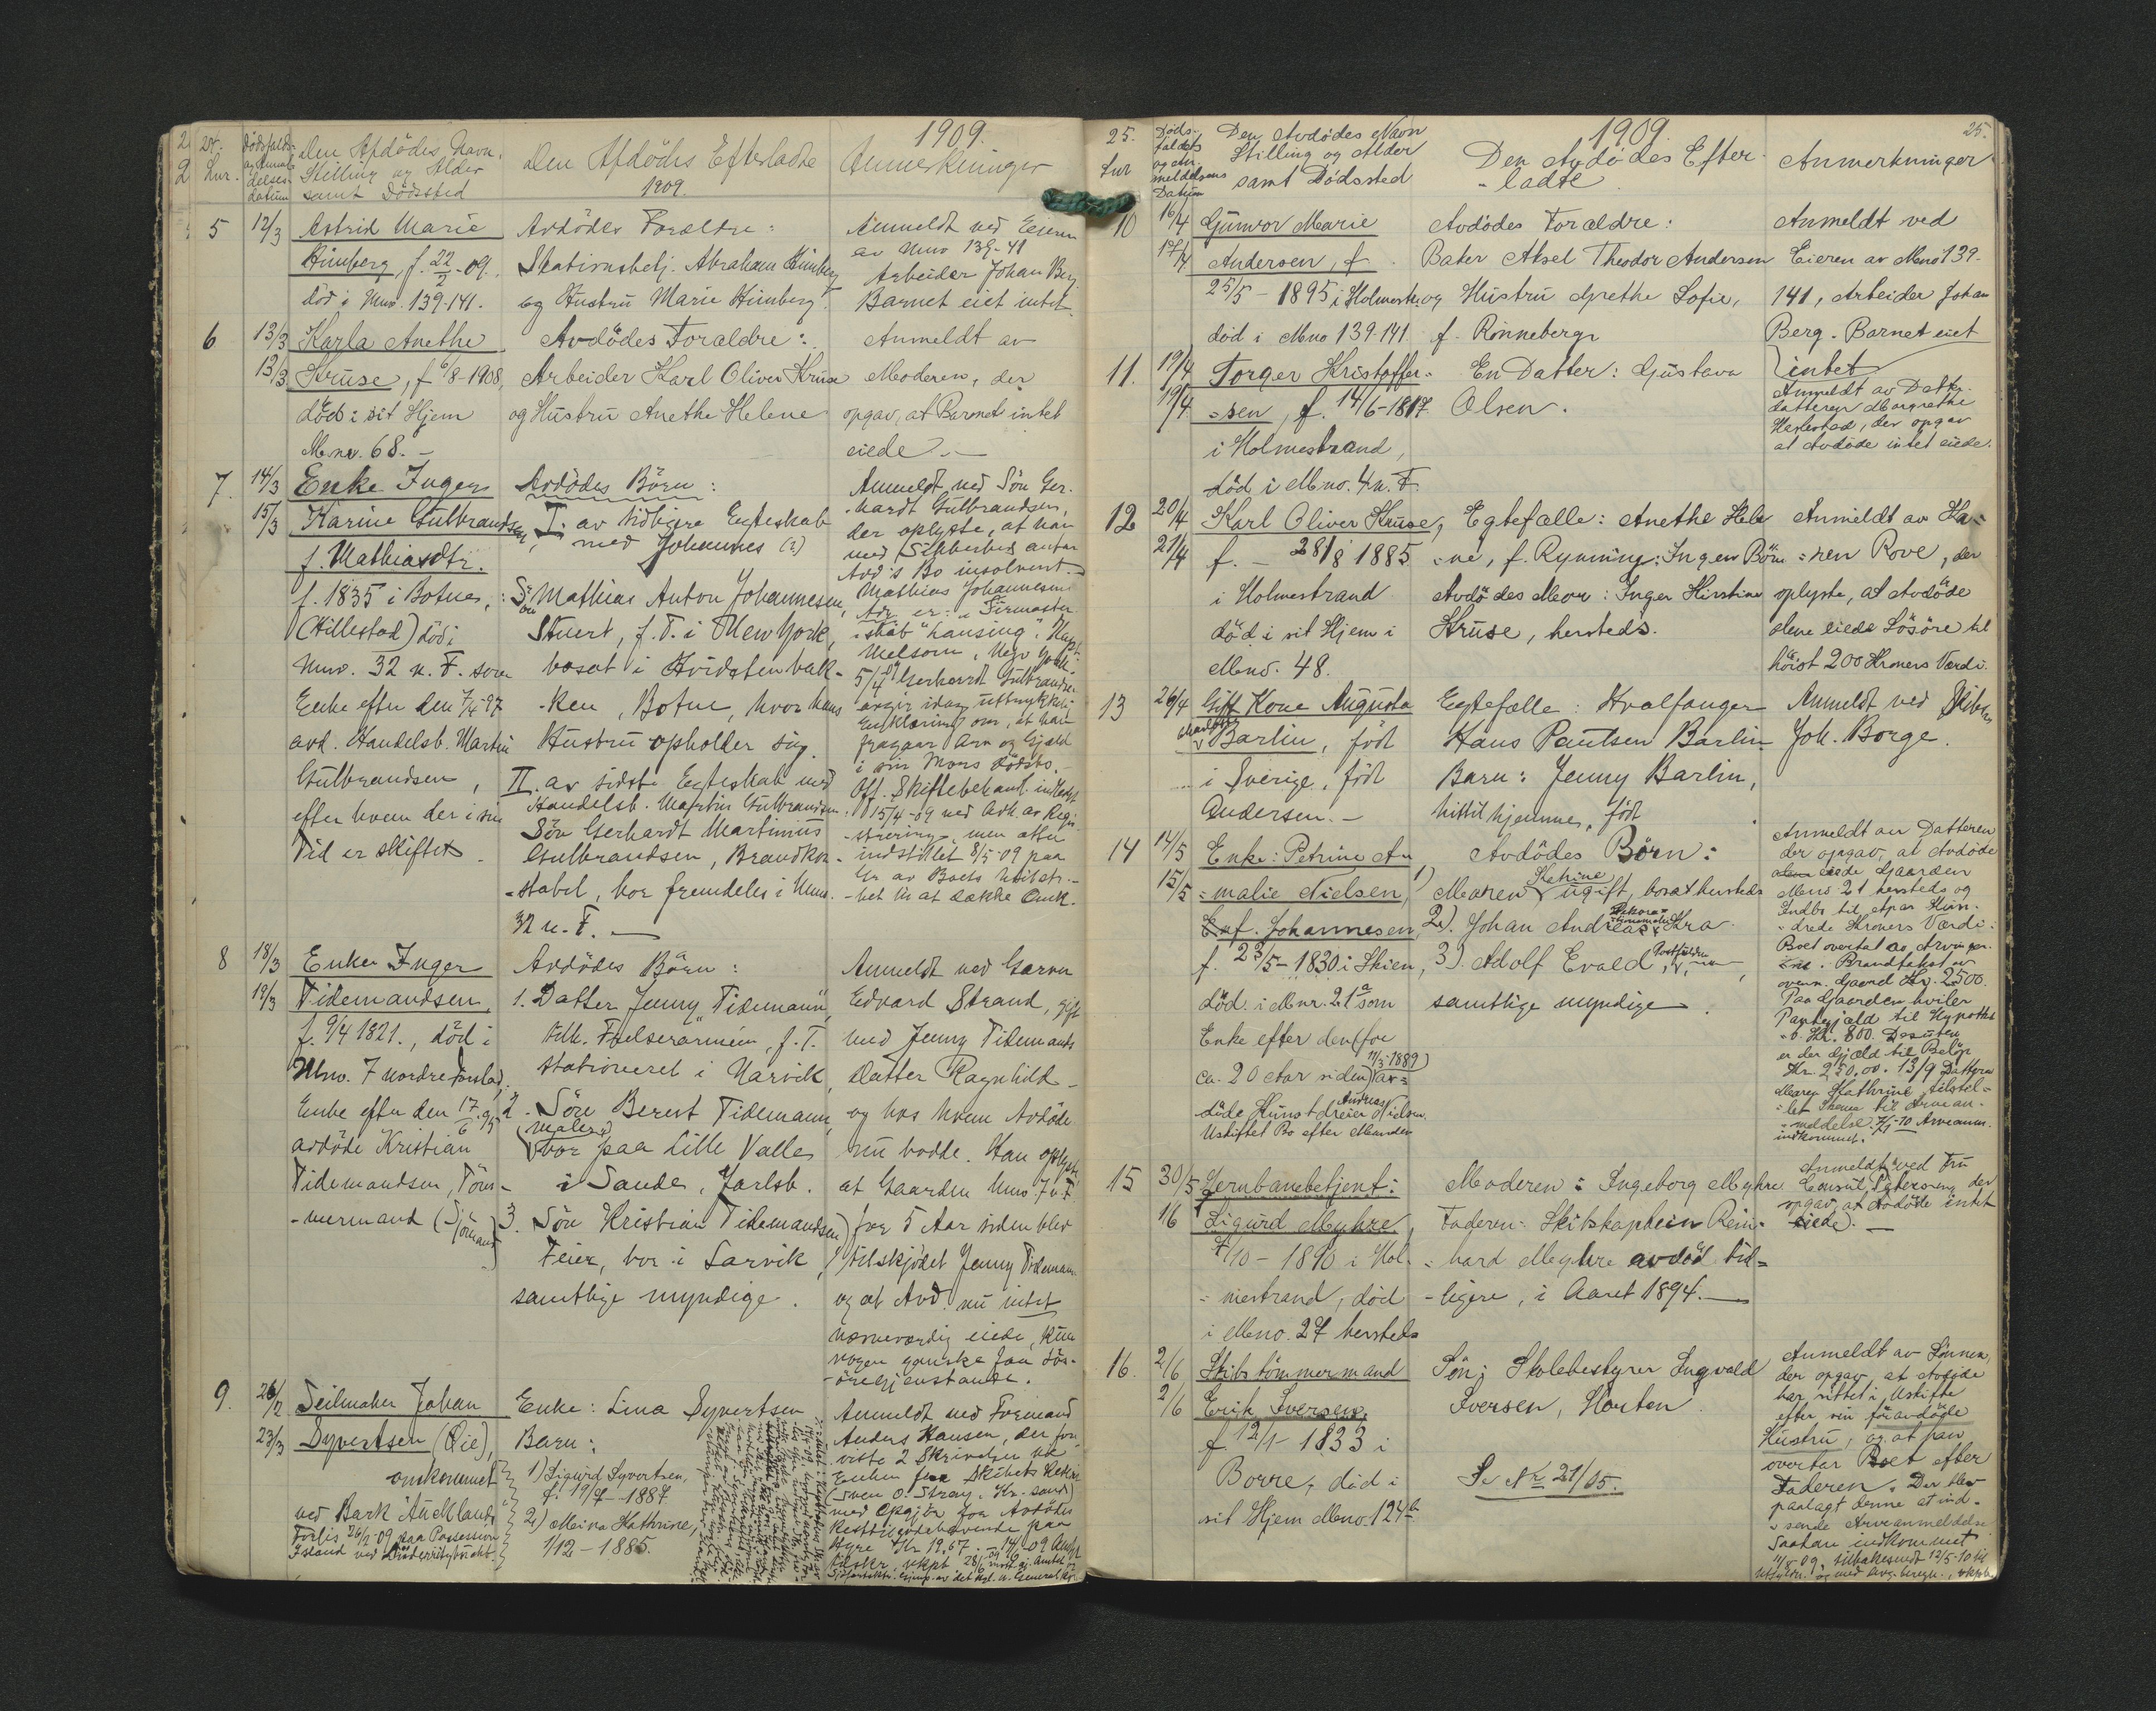 24.
Lnr.
Dødsfalds-
og Anmel-
delses-
datum
Den Afdödes Navn,
Stilling og Alder
samt Dödssted
Den Afdödes Efterladte
1909.
1909.
Anmerkninger
5
12/3
Astrid Marie
Himberg, f. 22/2-09.
död i Mno. 139-141.
Avdödes Forældre:
Stationsbetj. Abraham Himberg
og Hustru Marie Himberg.
Anmeldt ved Eieren
av Mno 139-41
Arbeider Johan Berg
Barnet eiet intet
6
13/3
13/3
Karla Anethe
Kruse, f 6/8-1908,
död i sit Hjem
M.no. 68. -
Avdödes Forældre:
Arbeider Karl Oliver Kruse
og Hustru Anethe Helene
Anmeldt av
Moderen, der
opgav, at Barnet intet
eiede. -
7.
14/3
15/3
Enke Inger
Karine Gulbrandsen,
f. Mathiasdtr.
f. 1835 i Botne,
(Hillestad) död i
Mno. 32 n. F. som
Enke efter den 7/4 97
avd. Handelsb. Martin
Gulbrandsen,
efter hvem der i sin
Tid er skiftet.
Avdödes Börn:
I. av tidligere Egteskab
med Johannes (?)
Sön Mathias Anton Johannesen,
Stuert, f. T. i New York,
bosat i Hvidstenbak-
ken, Botne, hvor hans
Hustru opholder sig.
II. av sidste Egteskab med
Handelsb. Martin Gulbrandsen
Sön Gerhardt Martinius
Gulbrandsen, Brandkon-
stabel, bor fremdeles i Mno.
32 n. F. -
Anmeldt ved Sön Ger-
hardt Gulbrandsen,
der oplyste, at han
med Sikkerhed antar
Avd's Bo insolvent. -
Mathias Johannesens
Adr. er:
5/4 09 Gerhardt Gulbrandsen
avgir idag uttrykkelig
Erklæring om, at han
fragaar Arv og Gjæld
i sin Mors Dödsbo. -
Off. Skiftebehandl. indledet
15/4-09 ved Avh. av Regi-
strering, men atter
indstillet 8/5-09 paa
Gr. av Boets
-het til at dække Omk.
8
18/3
19/3
Enken Inger
Tidemandsen,
f. 9/4 1821., död i
Mno. 7 nordre Forstad,
Enke efter den 17/6 95
avdöde Kristian
Tidemandsen, Töm-
-mermand (Sjömand)
Avdödes Börn:
1. Datter Jenny Tidemann,
tilh. Frelserarméen, f. T.
stationeret i Narvik,
2. Sön Berent Tidemann,
(maler)
bor paa Lille Valle
i Sande, Jarlsb.
3. Sön Kristian Tidemandsen,
Feier, bor i Larvik,
samtlige myndige.
Anmeldt ved Garver
Edvard Strand, gift
med Jenny Tidemans
Datter Ragnhild -
og hos hvem Avdöde
nu bodde. Han oplyste
at Gaarden Mno. 7 n. F.
for 5 Aar siden blev
tilskjödet Jenny Tideman
og at Avd. nu intet
nævneværdig eiede, kun
nogen ganske faa Lös-
öregjenstande.
9.
26/2
23/3
Seilmaker Johan
Syvertsen (Öie),
omkommet
ved Bark "Auckland's
Forlis 26/2-09 paa Possession
Island ved Lüderitzbucht
Enke: Lina Syvertsen
Barn:
1) Sigurd Syvertsen,
f. 19/7-1887
2) Meina Kathrine,
1/12-1885.
Anmeldt ved Formand
Anders Hansen, der fore-
viste 2 Skrivelser til
Enken fra Skibets Rederi
(Sven O. Stray, Kr.sand)
med Opgjör for Avdödes
Resttilgodehavende paa
Hyre Kr 19,67.
25.
Lnr
Döds-
faldets
og An-
meldelsens
Datum
Den Avdödes Navn
Stilling og Alder
samt Dödssted
1909.
Den Avdödes Efter-
-ladte
25.
Anmerkninger
10
16/4
17/4
Gunvor Marie
Andersen, f.
25/5-1895 i Holmestr.
död i Mno 139-141
Avdödes Forældre:
Bager Aksel Theodor Andersen
og Hustru Grethe Sofie,
f. Rönneberg
Anmeldt ved
Eieren av Mno 139-
141, Arbeider Johan
Berg. Barnet eiet
intet
11.
19/4
19/4
Torger Kristoffer-
-sen, f. 14/6-1817
i Holmestrand,
död i Mno. 4 n. F.
En Datter: Gustava
Olsen.
Anmeldt av Datter-
datteren Margrethe
Herlestad, der opgav
at Avdöde intet eiede.
12
20/4
21/4
Karl Oliver Kruse,
f. - 28/8 1885
i Holmestrand
död i sit Hjem i
Mno. 48.
Egtefælle: Anethe Hele
-ne, f. Rynning: Ingen Börn
Avdödes Mor: Inger Kirstine
Kruse, hersteds.
Anmeldt av Ha-
-ren Rove, der
oplyste, at Avdöde
alene eiede Lösöre til
höist 200 Kroners Værdi.
13
26/4
Gift Kone Augusta
Barlin, födt
i Sverige, födt
Andersen. -
Egtefælle: Hvalfanger
Hans Paulsen Barlin
Barn: Jenny Barlin,
hittil hjemme, födt
Anmeldt ved Skibsf.
Joh. Borge.
14
14/5
15/5
Enke: Petrine A
-malie Nielsen,
f. Johannesen,
f. 23/5-1830 i Skien,
död i Mnr. 21a som
Enke efter den (for
ca. 20 Aar siden) (11/3-1889) av-
döde Kunstdreier Andreas Nielsen.
Uskiftet Bo efter Manden
Avdödes Börn:
1) Maren Katrine ugift, bosat hersteds
2). Johan Andreas, Kra
3). Adolf Evald,
samtlige myndige.
Anmeldt av Datteren
der opgav, at Avdöde
eiede Gaarden
Mno 21 hersteds og
Indbo til et par Hun-
drede Kroners Værdi.
Boet overtat av Arvinger-
ne. Brandtakst av
ovenn. Gaard Kr. 2500.
Paa Gaarden hviler
Pantegjæld til Hypothek
b. Kr. 800. Desuten
er der Gjæld til Belöp
Kr. 250.00. 13/9 Datteren
Maren Kathrine tilstil-
-let Skema til Arvean-
-meldelse. 7/1-10 Arveanm.
indkommet.
15
30/5
16
Jernbanebetjent:
Sigurd Myhre,
4/10-1890 i Hol-
-mestrand, död
i Mno. 27 hersteds
Moderen: Ingeborg Myhre
Faderen: Skibskaptein Rein-
-hard Myhre avdöd tid-
-ligere, i Aaret 1894. -
Anmeldt ved Fru
Consul, der
opgav, at Avdöde intet
eiede. -
16.
2/6
2/6
Skibstömmermand
Erik Iversen,
f. 12/1-1833 i
Borre, död i
sit Hjem Mno. 124b
Sön: Skolebestyrer Ingvald
Iversen, Horten.
Se No 21/05.
Anmeldt av Sönnen,
der opgav, at Avdöde
har sittet i Uskifte
efter sin foravdöde
Hustru, og at han
overtar Boet efter
Faderen. Der blev
paalagt denne at ind-
sende Arveanmeldelse
Saadan indkommet
11/8-09, tilbakesendt 12/5-10 til